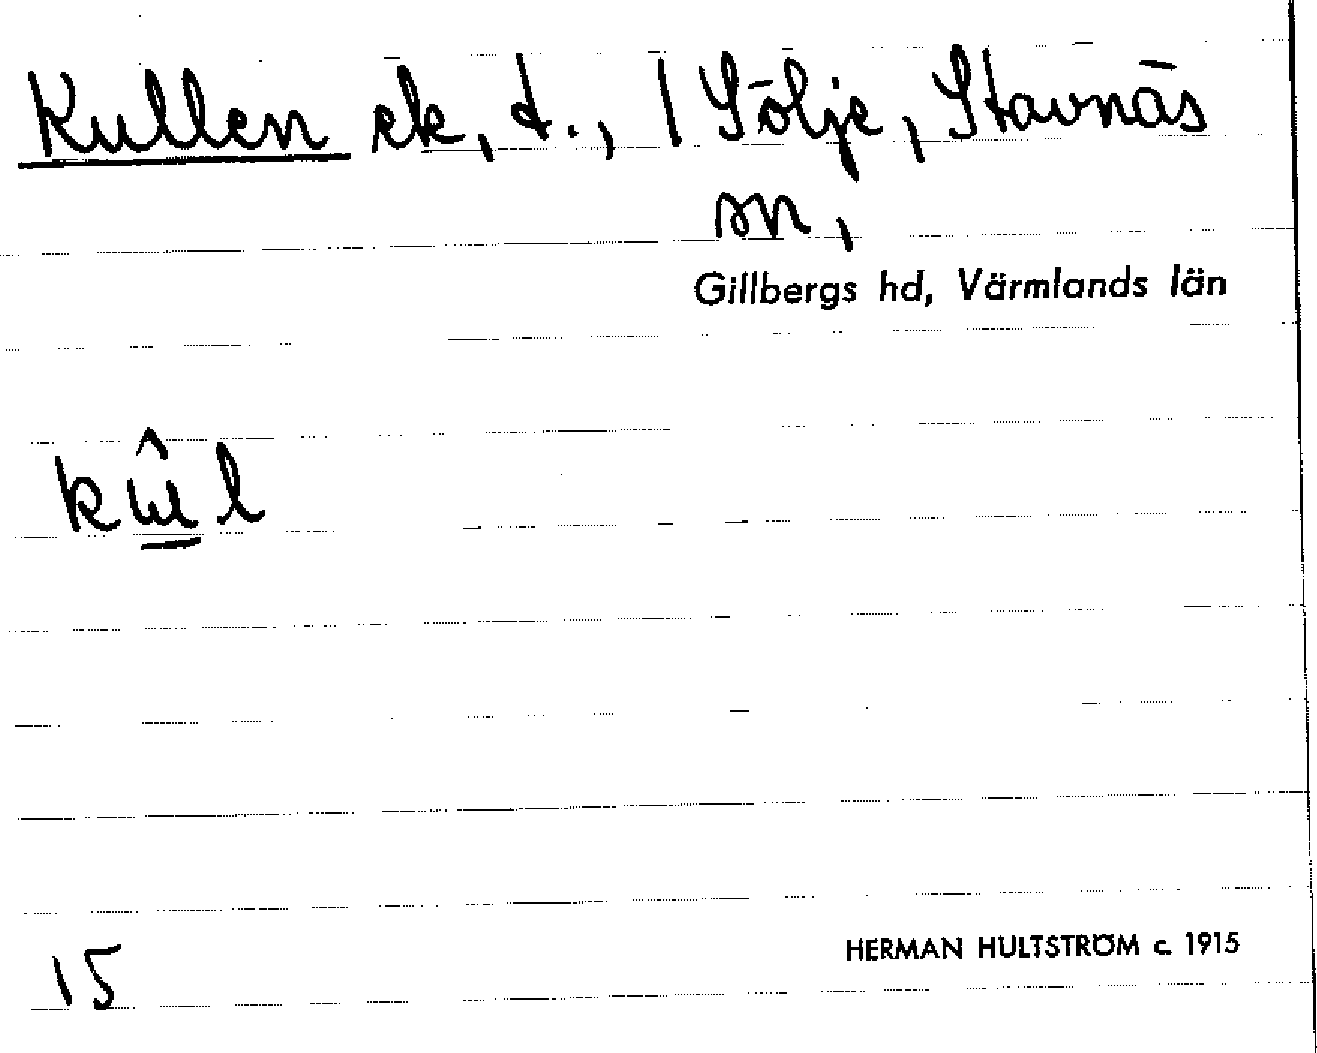 Kullen ek, t., 1 Sölje, Stavnäs
sn,
Gillbergs hd, Värmlands län
kûl
15
HERMAN HULTSTRÖM c. 1915